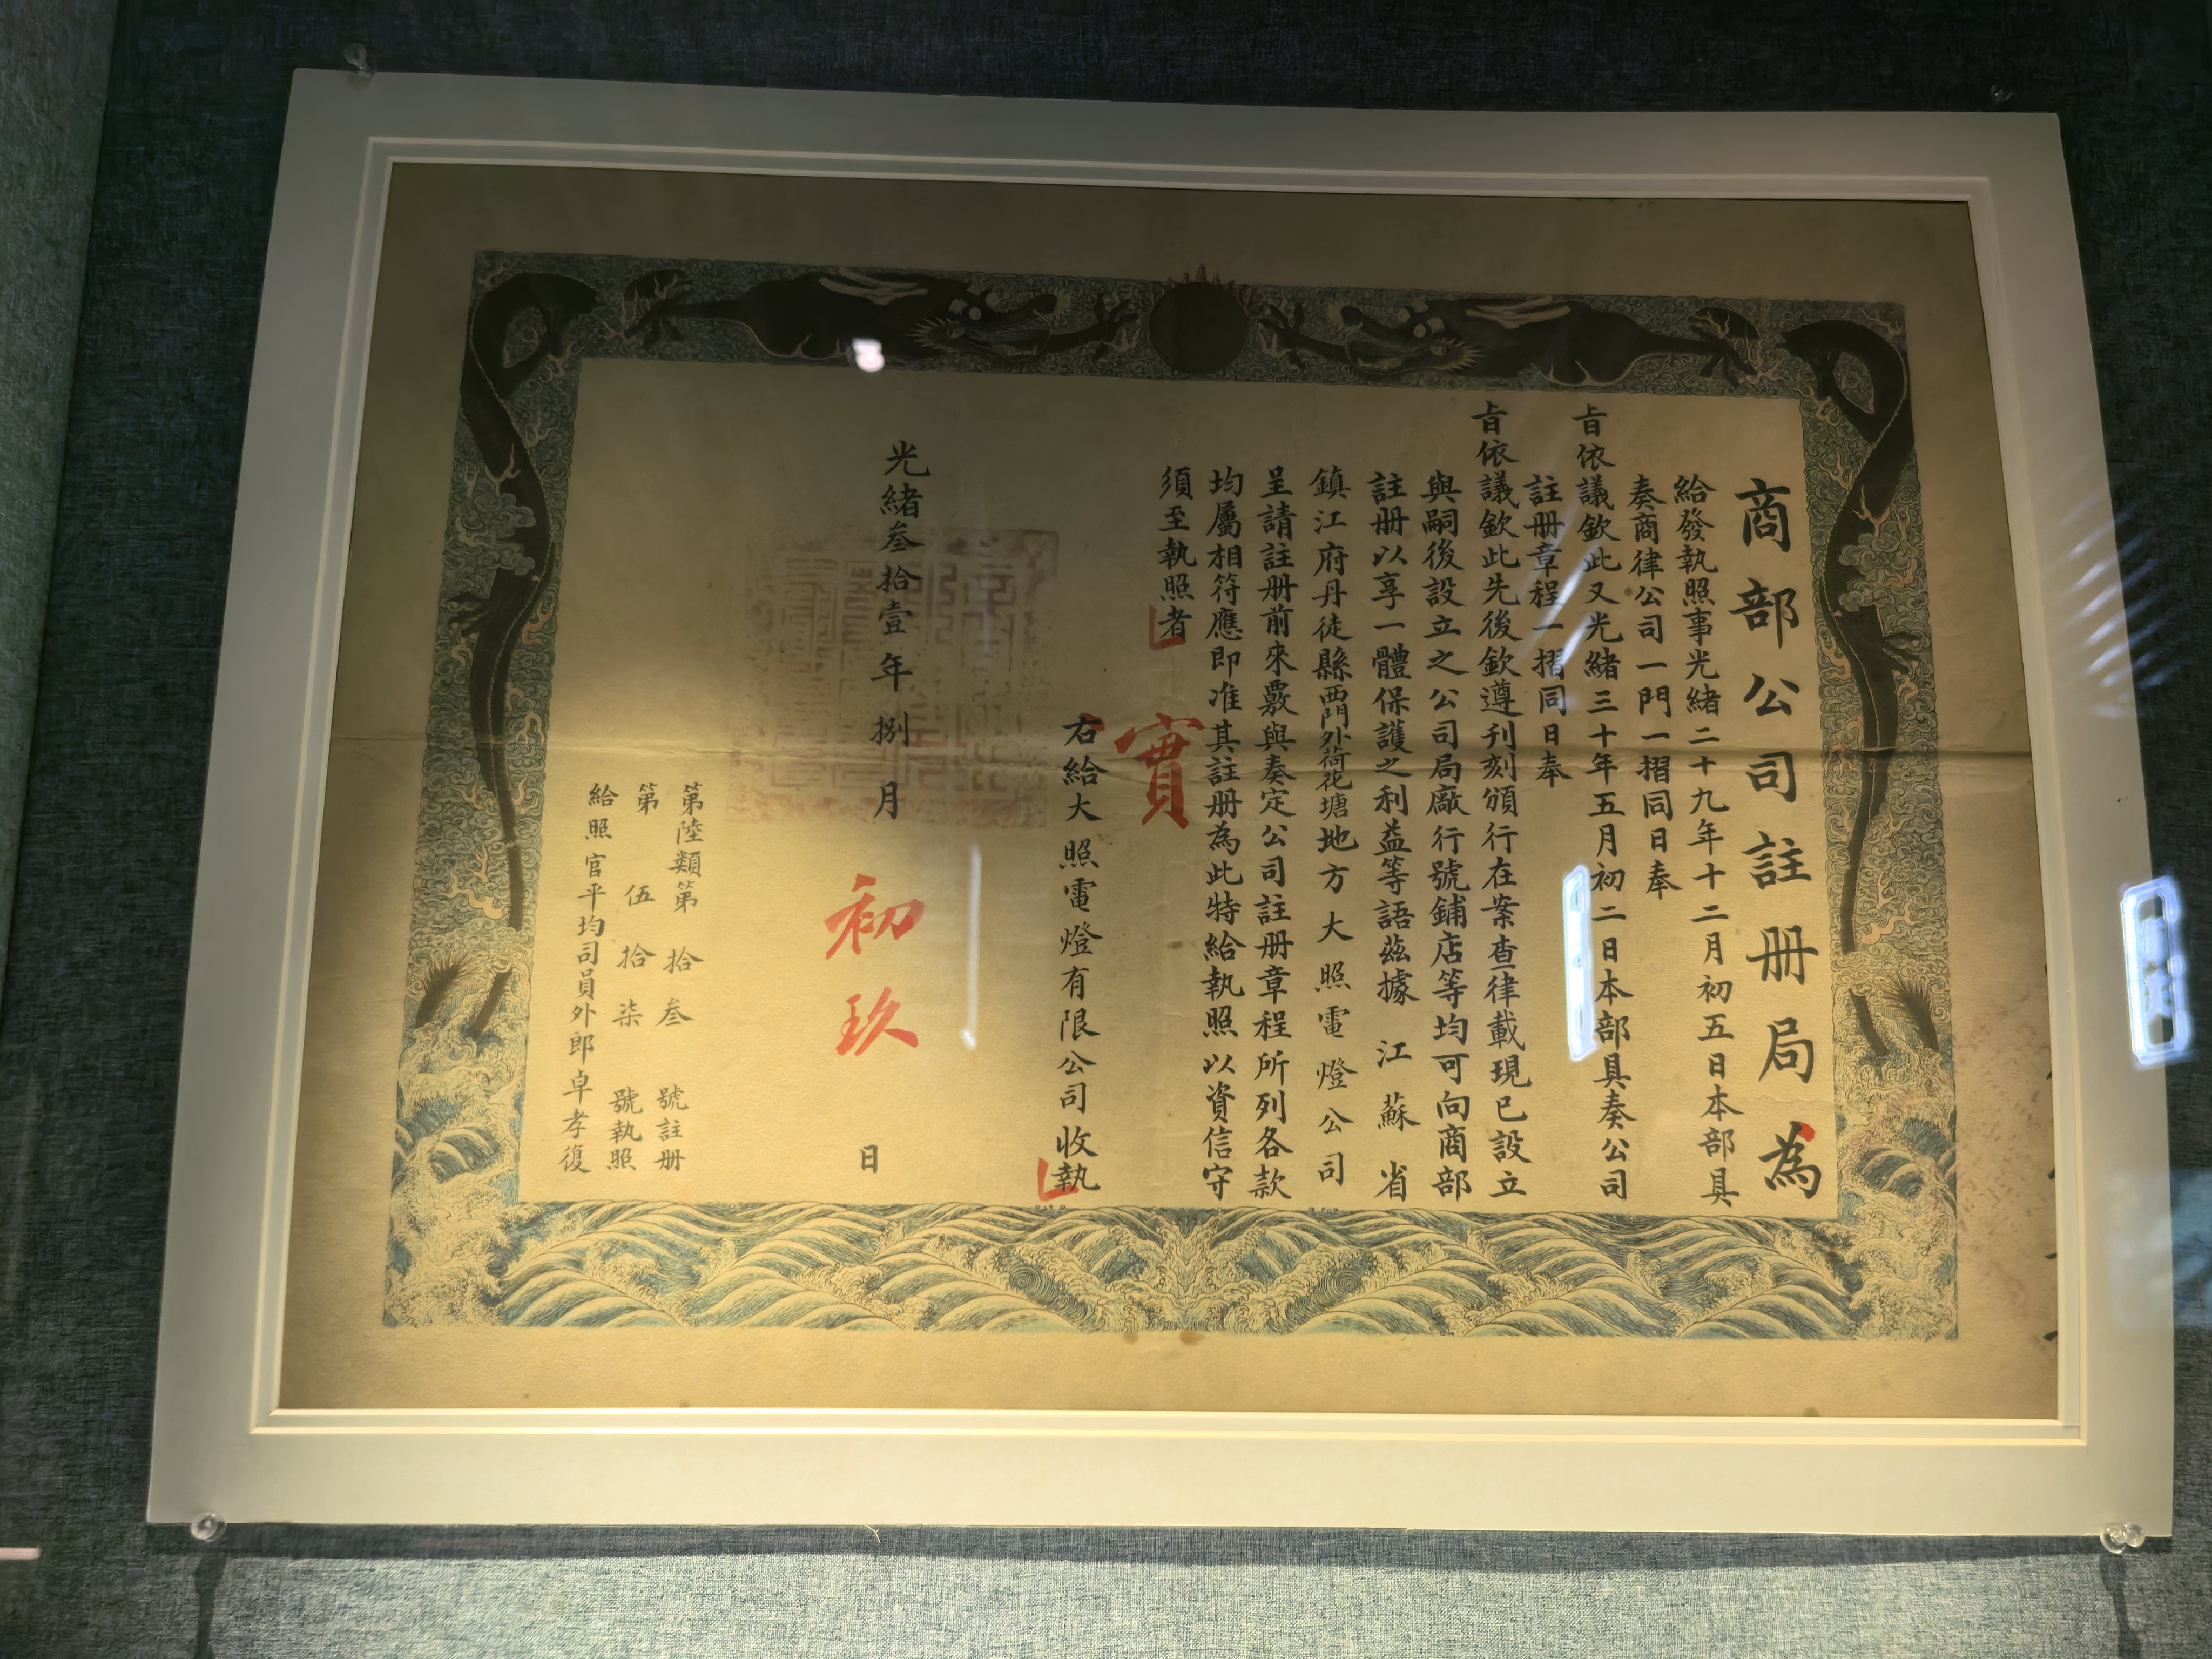 商部公司註册局為
給發執照事光緒二十九年十二月初五日本部具
奏商律公司一門一摺同日奉
旨依議欽此又光緒三十年五月初二日本部具奏公司
註册章程一摺同日奉
旨依議欽此先後欽遵刊刻頒行在案查律載現已設立
與嗣後設立之公司局廠行號鋪店等均可向商部
註册以享一體保護之利益等語茲據江蘇省
鎮江府丹徒縣西門外荷花塘地方大照電燈公司
呈請註册前來覈與奏定公司註册章程所列各款
均屬相符應即准其註册為此特給執照以資信守
須至執照者
實
右給大照電燈有限公司收執
光緒叁拾壹年捌月初玖日
第陸類第拾叁號註册
第伍拾柒號執照
給照官平均司員外郎卓孝復